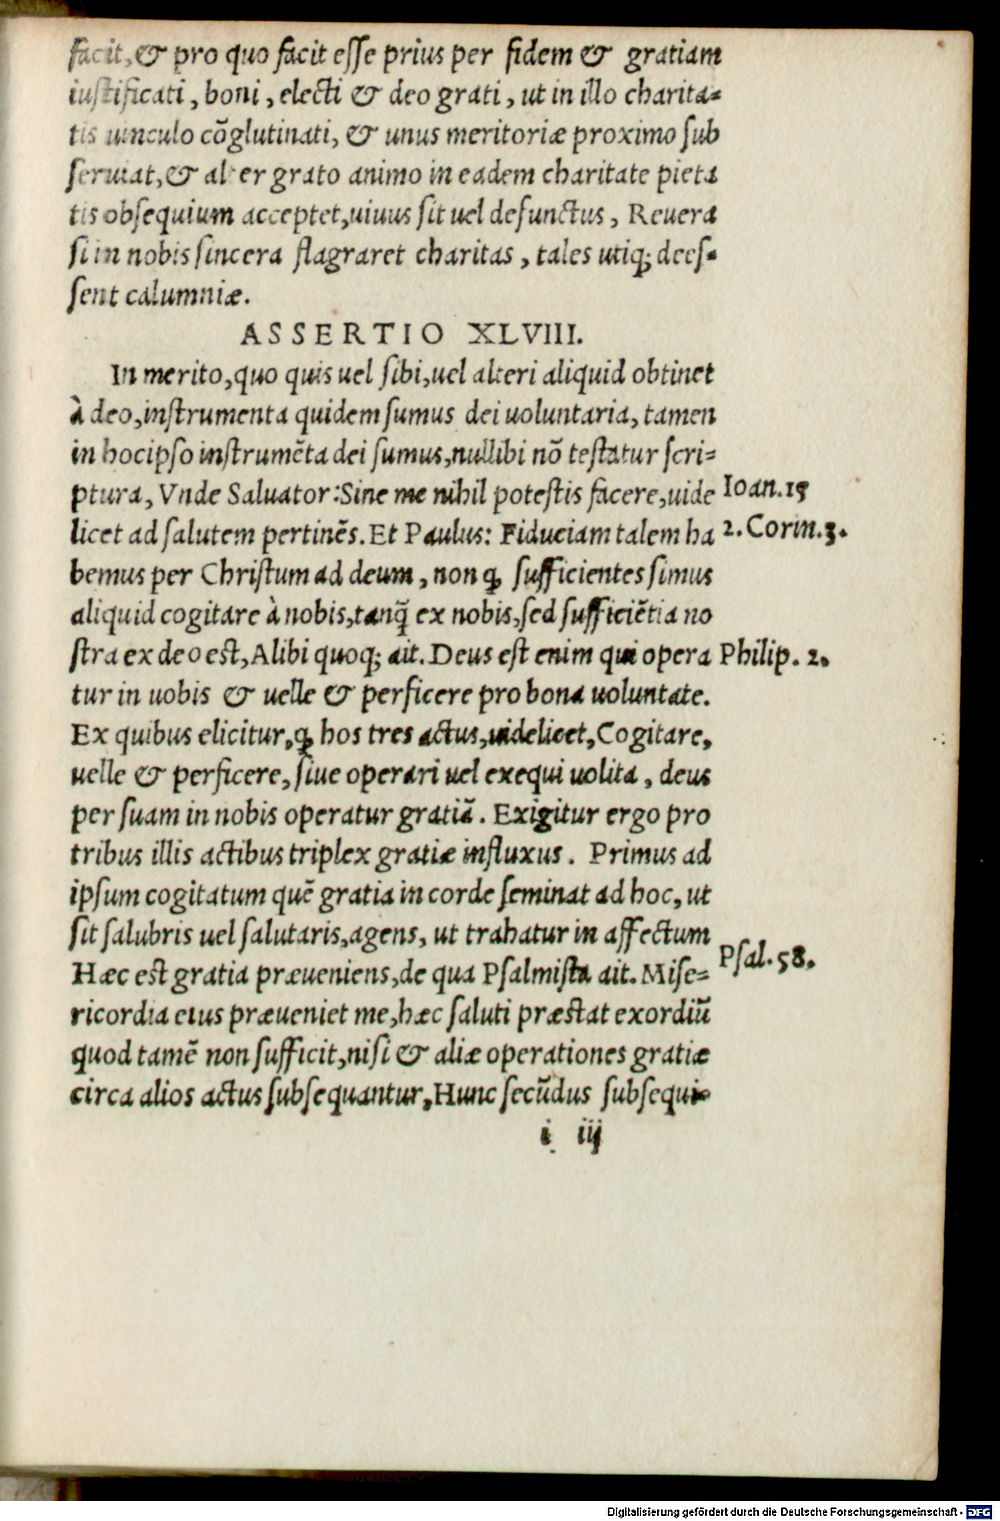 facit, & pro quo facit esse prius per fidem & gratiam
iustificati, boni, electi & deo grati, ut in illo charita-
tis uinculo cōglutinati, & unus meritoriæ proximo sub
seruiat, & alter grato animo in eadem charitate pieta
tis obsequium acceptet, uiuus sit uel defunctus, Reuera
si in nobis sincera flagraret charitas, tales utiq; dees-
sent calumniæ.
ASSERTIO XLVIII.
In merito, quo quis uel sibi, uel alteri aliquid obtinet
à deo, instrumenta quidem sumus dei uoluntaria, tamen
in hocipso instrumēta dei sumus, nullibi nō testatur scri-
ptura, Vnde Saluator: Sine me nihil potestis facere, uide Ioan. 15
licet ad salutem pertinēs. Et Paulus: Fiduciam talem ha 2. Corin. 3.
bemus per Christum ad deum, non ꝙ sufficientes simus
aliquid cogitare à nobis, tanq̃ ex nobis, sed sufficiētia no
stra ex deo est, Alibi quoq; ait. Deus est enim qui opera Philip. 2.
tur in uobis & uelle & perficere pro bona uoluntate.
Ex quibus elicitur, ꝙ hos tres actus, uidelicet, Cogitare,
uelle & perficere, siue operari uel exequi uolita, deus
per suam in nobis operatur gratiā. Exigitur ergo pro
tribus illis actibus triplex gratiæ influxus. Primus ad
ipsum cogitatum quē gratia in corde seminat ad hoc, ut
sit salubris uel salutaris, agens, ut trahatur in affectum
Hæc est gratia præueniens, de qua Psalmista ait. Mise- Psal. 58.
ricordia eius præueniet me, hæc saluti præstat exordiū
quod tamē non sufficit, nisi & aliæ operationes gratiæ
circa alios actus subsequantur, Hunc secūdus subsequi-
i iij
Digitalisierung gefördert durch die Deutsche Forschungsgemeinschaft - DFG